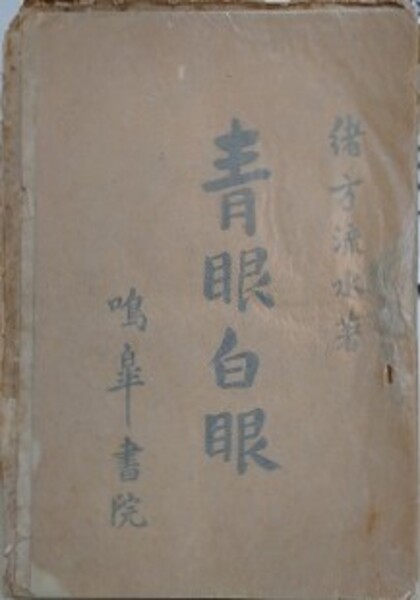 緒方流水著
青眼白眼
鳴皐書院